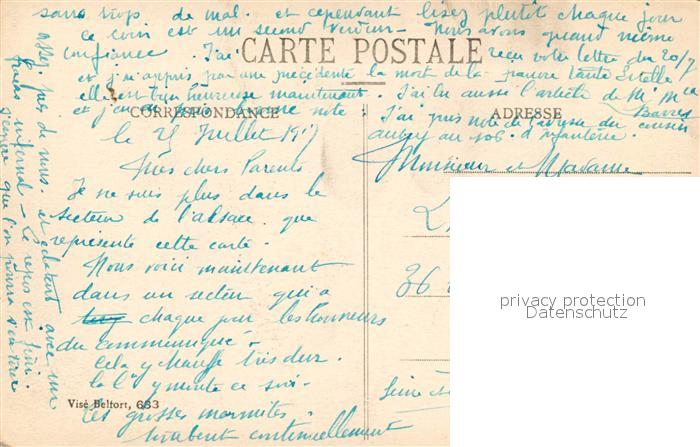 le 25 Juillet 1917
Mes chers Parents
Je ne suis plus dans le
secteur de l'alsace que
représente cette carte.
Nous voici maintenant
dans un secteur qui a
chaque jour les honneurs
du communiqué.
Cela y chauffe très dur.
la Cie y monte ce soir.
Les grosses marmites
tombent continuellement
assez près de nous et éclatent avec un
fracas infernal - Le repos est fini.
J'espère que l'on pourra s'en tirer
sans trop de mal. et cependant lisez plutôt chaque jour
ce coin est un second Verdun - Nous avons quand même
confiance. J'ai reçu votre lettre du 20/7
et j'ai appris par une précédente la mort de la pauvre tante Estelle
elle est bien heureuse maintenant. J'ai lu aussi l'article de Mr Mce
Barrès
et j'en ai pris bonne note. J'ai pris note de l'adresse du cousin
aubry au 106. d'infanterie.
CARTE POSTALE
CORRESPONDANCE
ADRESSE
Monsieur et Madame
36
Seine
Visé Belfort, 633
privacy protection
Datenschutz